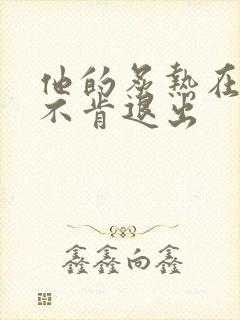 他的炙热在
不肯退出
鑫鑫向鑫